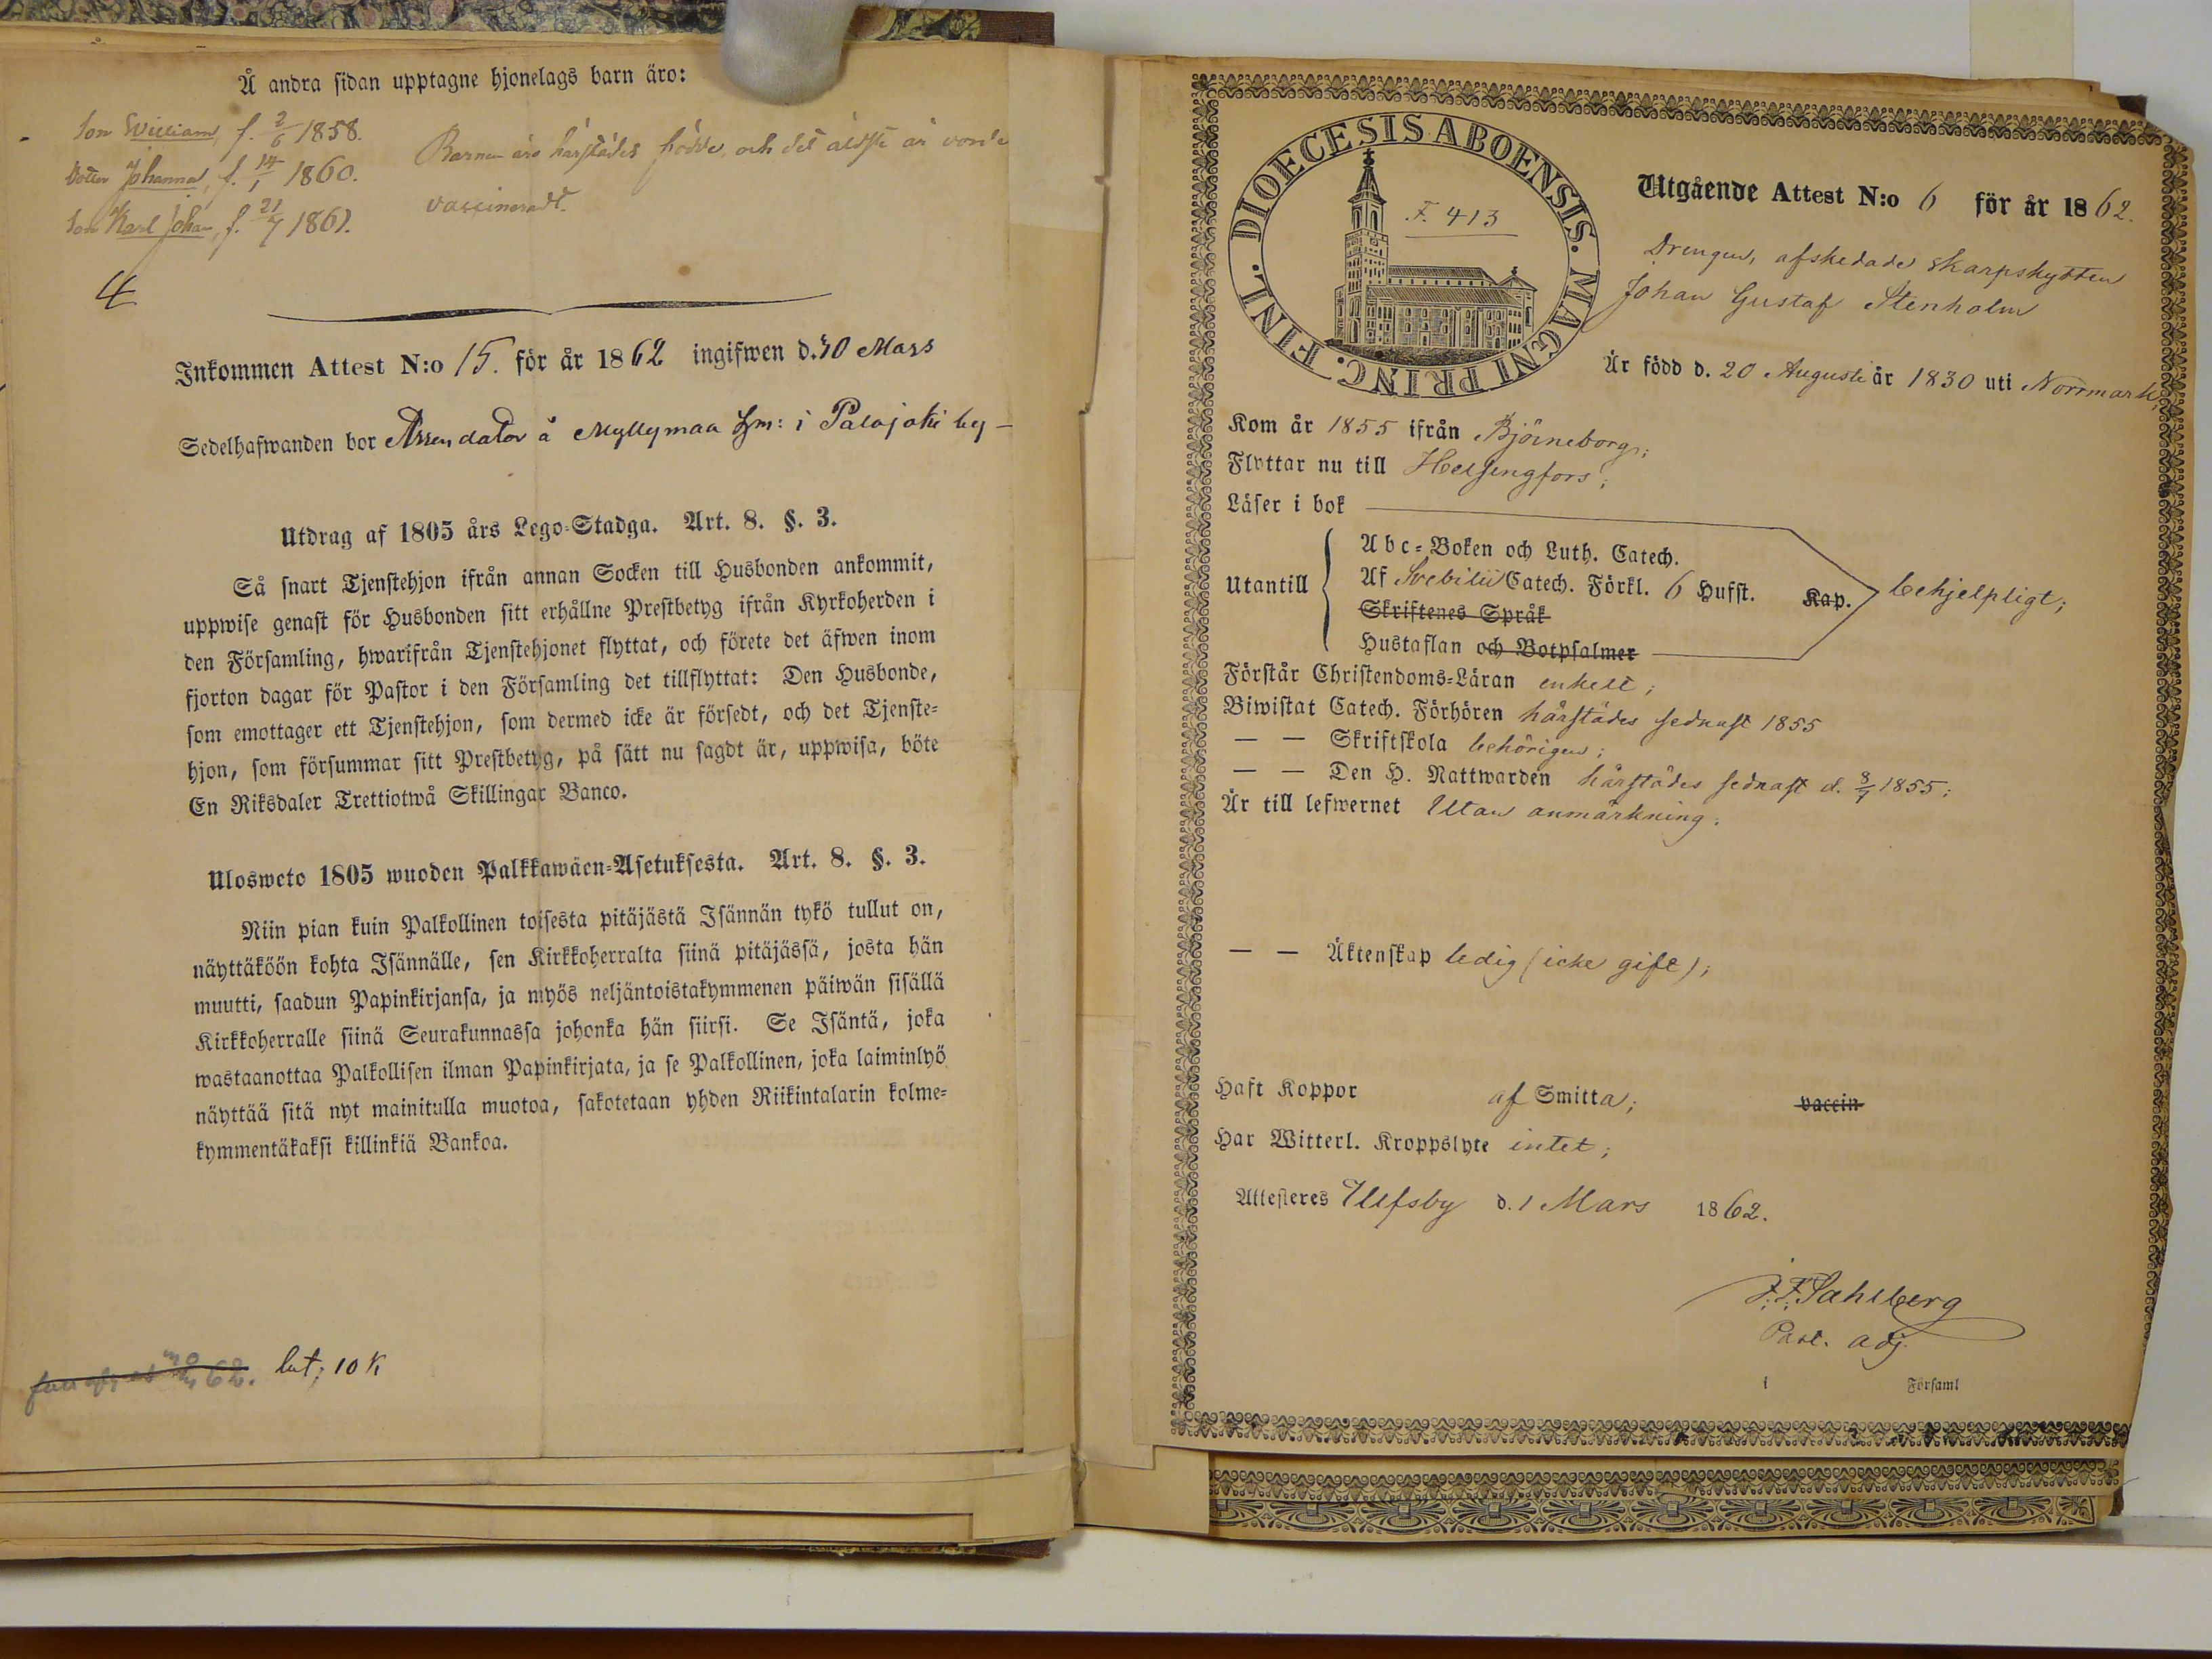 Å andra sidan upptagne hjonelags barn äro:
Son William, f. 2/6 1858.
Dotter Johanna, f. 14/1 1860.
Son Karl Johan, f. 21/7 1861.
Barnen äro härstädes födde, och det äldste är
vaccineradt.
4
Inkommen Attest N:o 15. för år 1862 ingifwen d. 30 Mars
Sedelhafwanden bor Arrendator å Myllymaa Hm: i Palojoki by
Utdrag af 1805 års Lego-Stadga. Art. 8. §. 3.
Så snart Tjenstehjon ifrån annan Socken till Husbonden ankommit,
uppwise genast för Husbonden sitt erhållne Prestbetyg ifrån Kyrkoherden i
den Församling, hwarifrån Tjenstehjonet flyttat, och förete det äfwen inom
fjorton dagar för Pastor i den Församling det tillflyttat: Den Husbonde,
som emottager ett Tjenstehjon, som dermed icke är försedt, och det Tjenste-
hjon, som försummar sitt Prestbetyg, på sätt nu sagdt är, uppwisa, böte
En Riksdaler Trettiotwå Skillingar Banco.
Ulosweto 1805 wuoden Palkkawäen-Asetuksesta. Art. 8. §. 3.
Niin pian kuin Palkollinen toisesta pitäjästä Isännän tykö tullut on,
näyttäköön kohta Isännälle, sen Kirkkoherralta siinä pitäjässä, josta hän
muutti, saadun Papinkirjansa, ja myös neljäntoistakymmenen päiwän sisällä
Kirkkoherralle siinä Seurakunnassa johonka hän siirsi. Se Isäntä, joka
wastaanottaa Palkollisen ilman Papinkirjata, ja se Palkollinen, joka laiminlyö
näyttää sitä nyt mainitulla muotoa, sakotetaan yhden Riikintalarin kolme-
kymmentäkaksi killinkiä Bankoa.
62. lut; 10 K
DIOECESIS ABOENSIS. MAGNI PRINC. FINL.
F. 413
Utgående Attest N:o 6 för år 1862.
Drengen, afskedade skarpskytten
Johan Gustaf Stenholm
Är född d. 20 Augusti år 1830 uti Norrmark;
Kom år 1855 ifrån Björneborg;
Flyttar nu till Helsingfors;
Läser i bok
Utantill
Abc-Boken och Luth. Catech.
Af Svebilii Catech. Förkl. 6 Hufst. Kap. behjelpligt;
Skriftenes Språk
Hustaflan och Botpsalmer
Förstår Christendoms-Läran enkelt;
Biwistat Catech. Förhören härstädes sednast 1855
— — Skriftskola behörigen;
— — Den H. Nattwarden härstädes sednast d. 8/7 1855;
Är till lefwernet Utan anmärkning.
— — Äktenskap ledig (icke gift);
Haft Koppor af Smitta; vaccin
Har Witterl. Kroppslyte intet;
Attesteres Ulfsby d. 1 Mars 1862.
J. F. Sahlberg
Past. adj.
i Församl